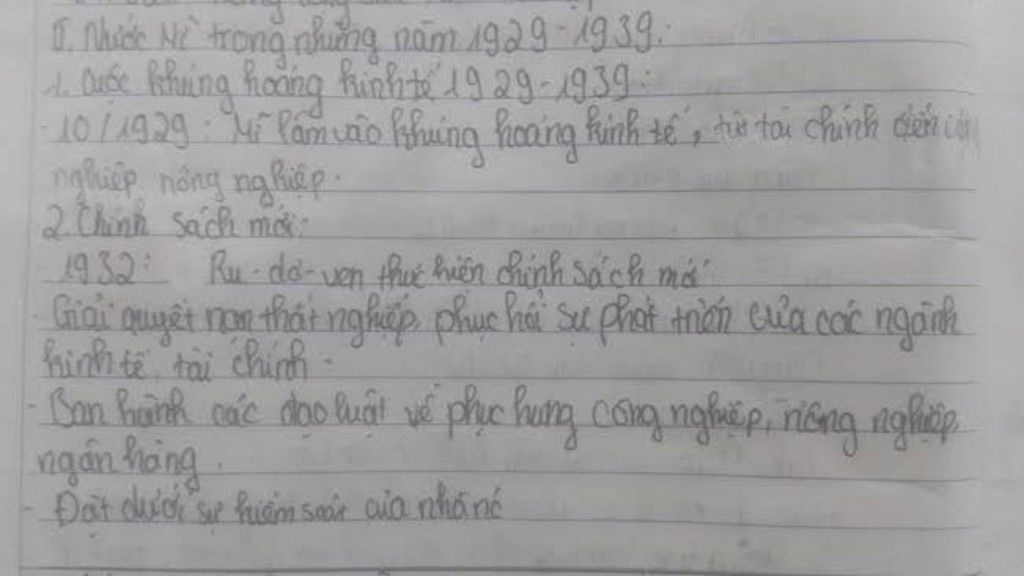 II. Nước Mĩ trong những năm 1929-1939:
1. Cuộc khủng hoảng kinh tế 1929-1939:
- 10/1929: Mĩ lâm vào khủng hoảng kinh tế, từ tài chính đến
nghiệp, nông nghiệp.
2. Chính sách mới:
1932: Ru-dơ-ven thực hiện chính sách mới
- Giải quyết nạn thất nghiệp, phục hồi sự phát triển của các ngành
kinh tế, tài chính.
- Ban hành các đạo luật về phục hưng công nghiệp, nông nghiệp,
ngân hàng.
- Đặt dưới sự kiểm soát của nhà nc